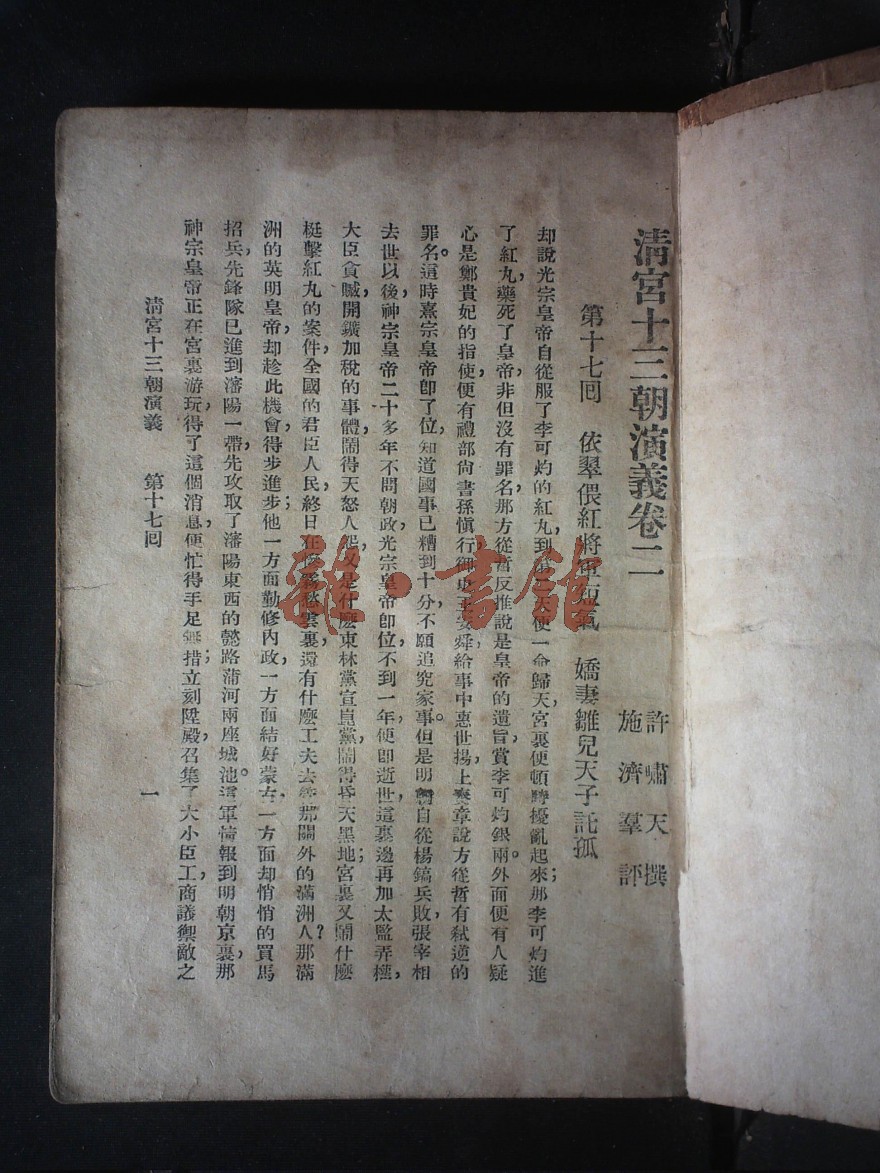 清宮十三朝演義卷二
許嘯天撰
施濟羣評
第十七回 依翠偎紅將軍短氣 嬌妻雛兒天子託孤
却說光宗皇帝自從服了李可灼的紅丸,到第二天便一命歸天,宮裏便頓時擾亂起來;那李可灼進
了紅丸,藥死了皇帝,非但沒有罪名,那方從哲反推說是皇帝的遺旨,賞李可灼銀兩。外面便有人疑
心是鄭貴妃的指使,便有禮部尚書孫愼行,御史王安舜,給事中惠世揚,上奏章說方從哲有弒逆的
罪名。這時熹宗皇帝卽了位,知道國事已糟到十分,不願追究家事。但是明朝自從楊鎬兵敗,張宰相
去世以後,神宗皇帝二十多年不問朝政,光宗皇帝卽位,不到一年,便卽逝世,這裏邊再加太監弄權,
大臣貪贓,開鑛加稅的事體,鬧得天怒人怨,又是什麼東林黨宣崑黨,鬧得昏天黑地;宮裏又鬧什麼
梃擊紅丸的案件,全國的君臣人民,終日在愁雲裏,還有什麼工夫去管那關外的滿洲人?那滿
洲的英明皇帝,却趁此機會,得步進步;他一方面勤修內政,一方面結好蒙古,一方面却悄悄的買馬
招兵,先鋒隊已進到瀋陽一帶,先攻取了瀋陽東西的懿路蒲河兩座城池。這軍情報到明朝京裏,那
神宗皇帝正在宮裏游玩,得了這個消息,便忙得手足無措;立刻陞殿,召集了大小臣工,商議禦敵之
清宮十三朝演義 第十七回 一
雜·書館